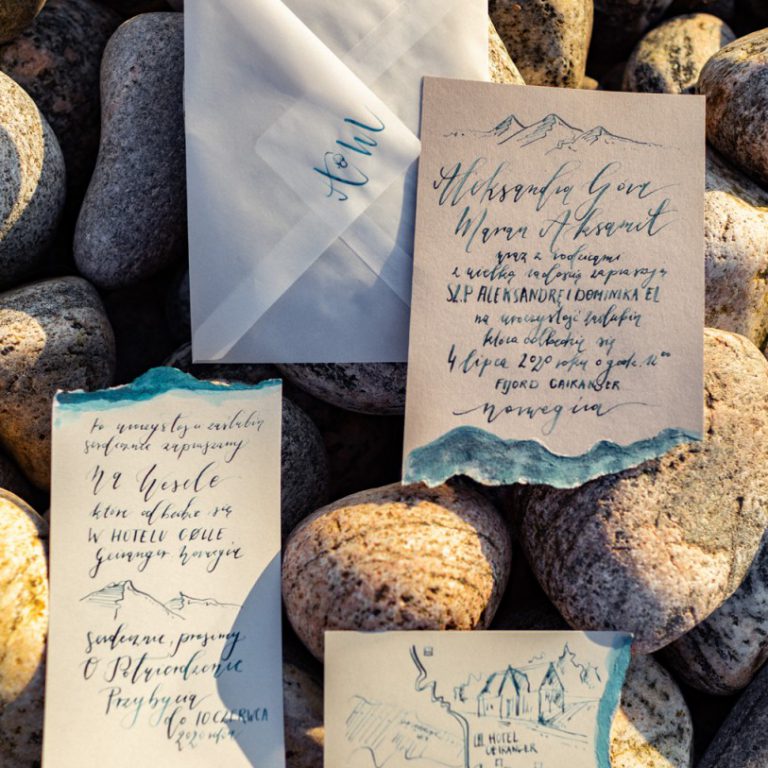 A & M
Aleksandra Góra
Maran Aksamit
wraz z rodzinami
z wielką radością zapraszają
SZ.P ALEKSANDRĘ I DOMINIKA EL
na uroczystość zaślubin
która odbędzie się
4 lipca 2020 roku o godz.
FIJORD GAIRANGER
Norwegia
Po uroczystości zaślubin
serdecznie zapraszamy
Na Wesele
które odbędzie się
W HOTELU GOLLE
Geiranger Norwegia
Serdecznie prosimy
O Potwierdzenie
Przybycia
do 10 CZERWCA
2020 roku
HOTEL
GEIRANGER